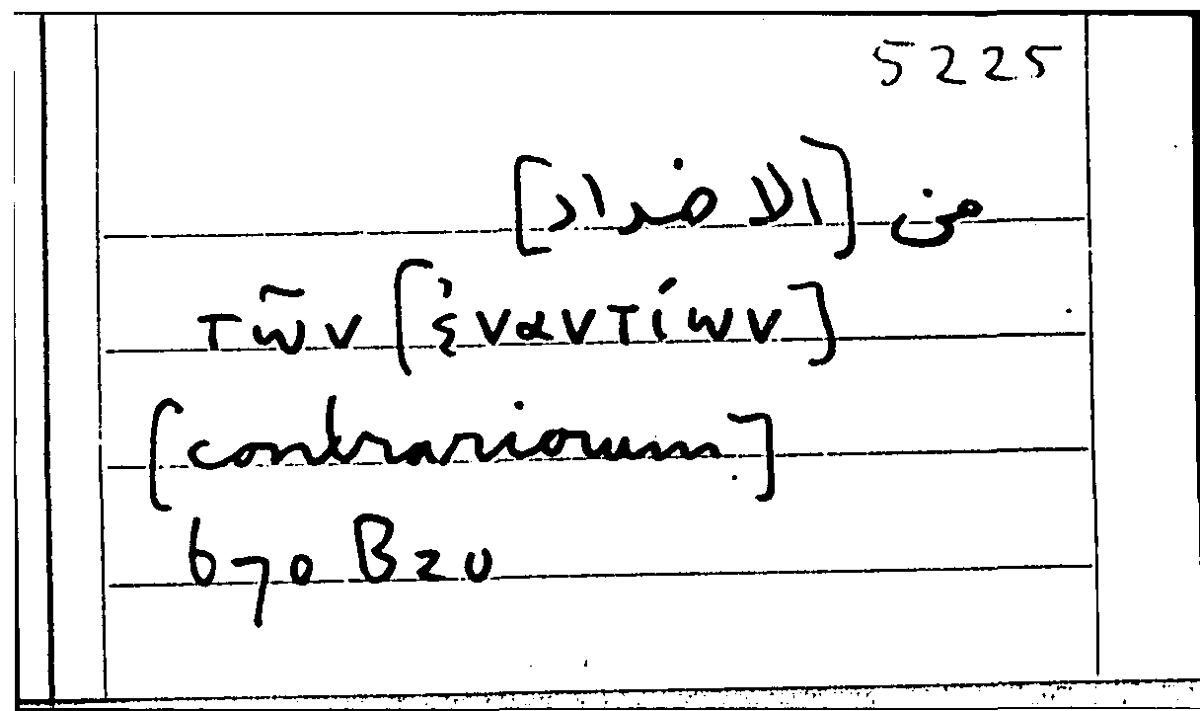 5225
من [الاضداد]
τῶν [ἐναντίων]
[contrariorum]
670 B20